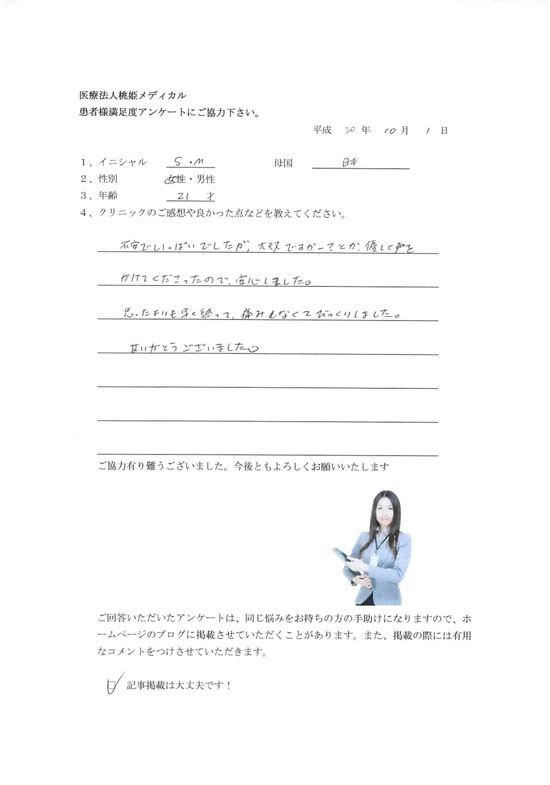 医療法人桃姫メディカル
患者様満足度アンケートにご協力下さい。
平成 30 年 10 月 1 日
1、イニシャル S・M 母国 日本
2、性別 女性・男性
3、年齢 21 才
4、クリニックのご感想や良かった点などを教えてください。
不安でいっぱいでしたが、大丈夫ですかーってとか、優しく声を
かけてくださったので、安心しました。
思ったよりも早く終って、痛みもなくてびっくりしました。
ありがとうございました。
ご協力有り難うございました。今後ともよろしくお願いいたします
ご回答いただいたアンケートは、同じ悩みをお持ちの方の手助けになりますので、ホ
ームページのブログに掲載させていただくことがあります。また、掲載の際には有用
なコメントをつけさせていただきます。
記事掲載は大丈夫です！